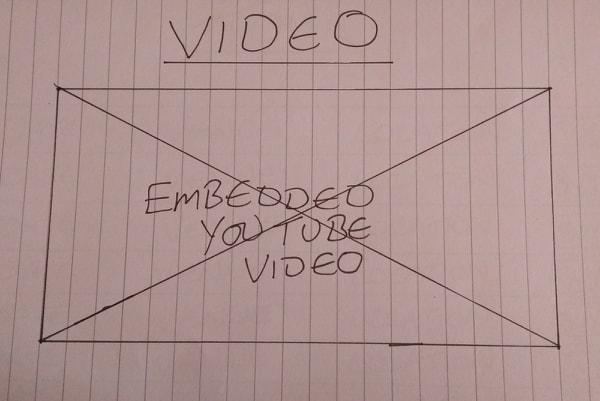 VIDEO
EMBEDDED
YOUTUBE
VIDEO